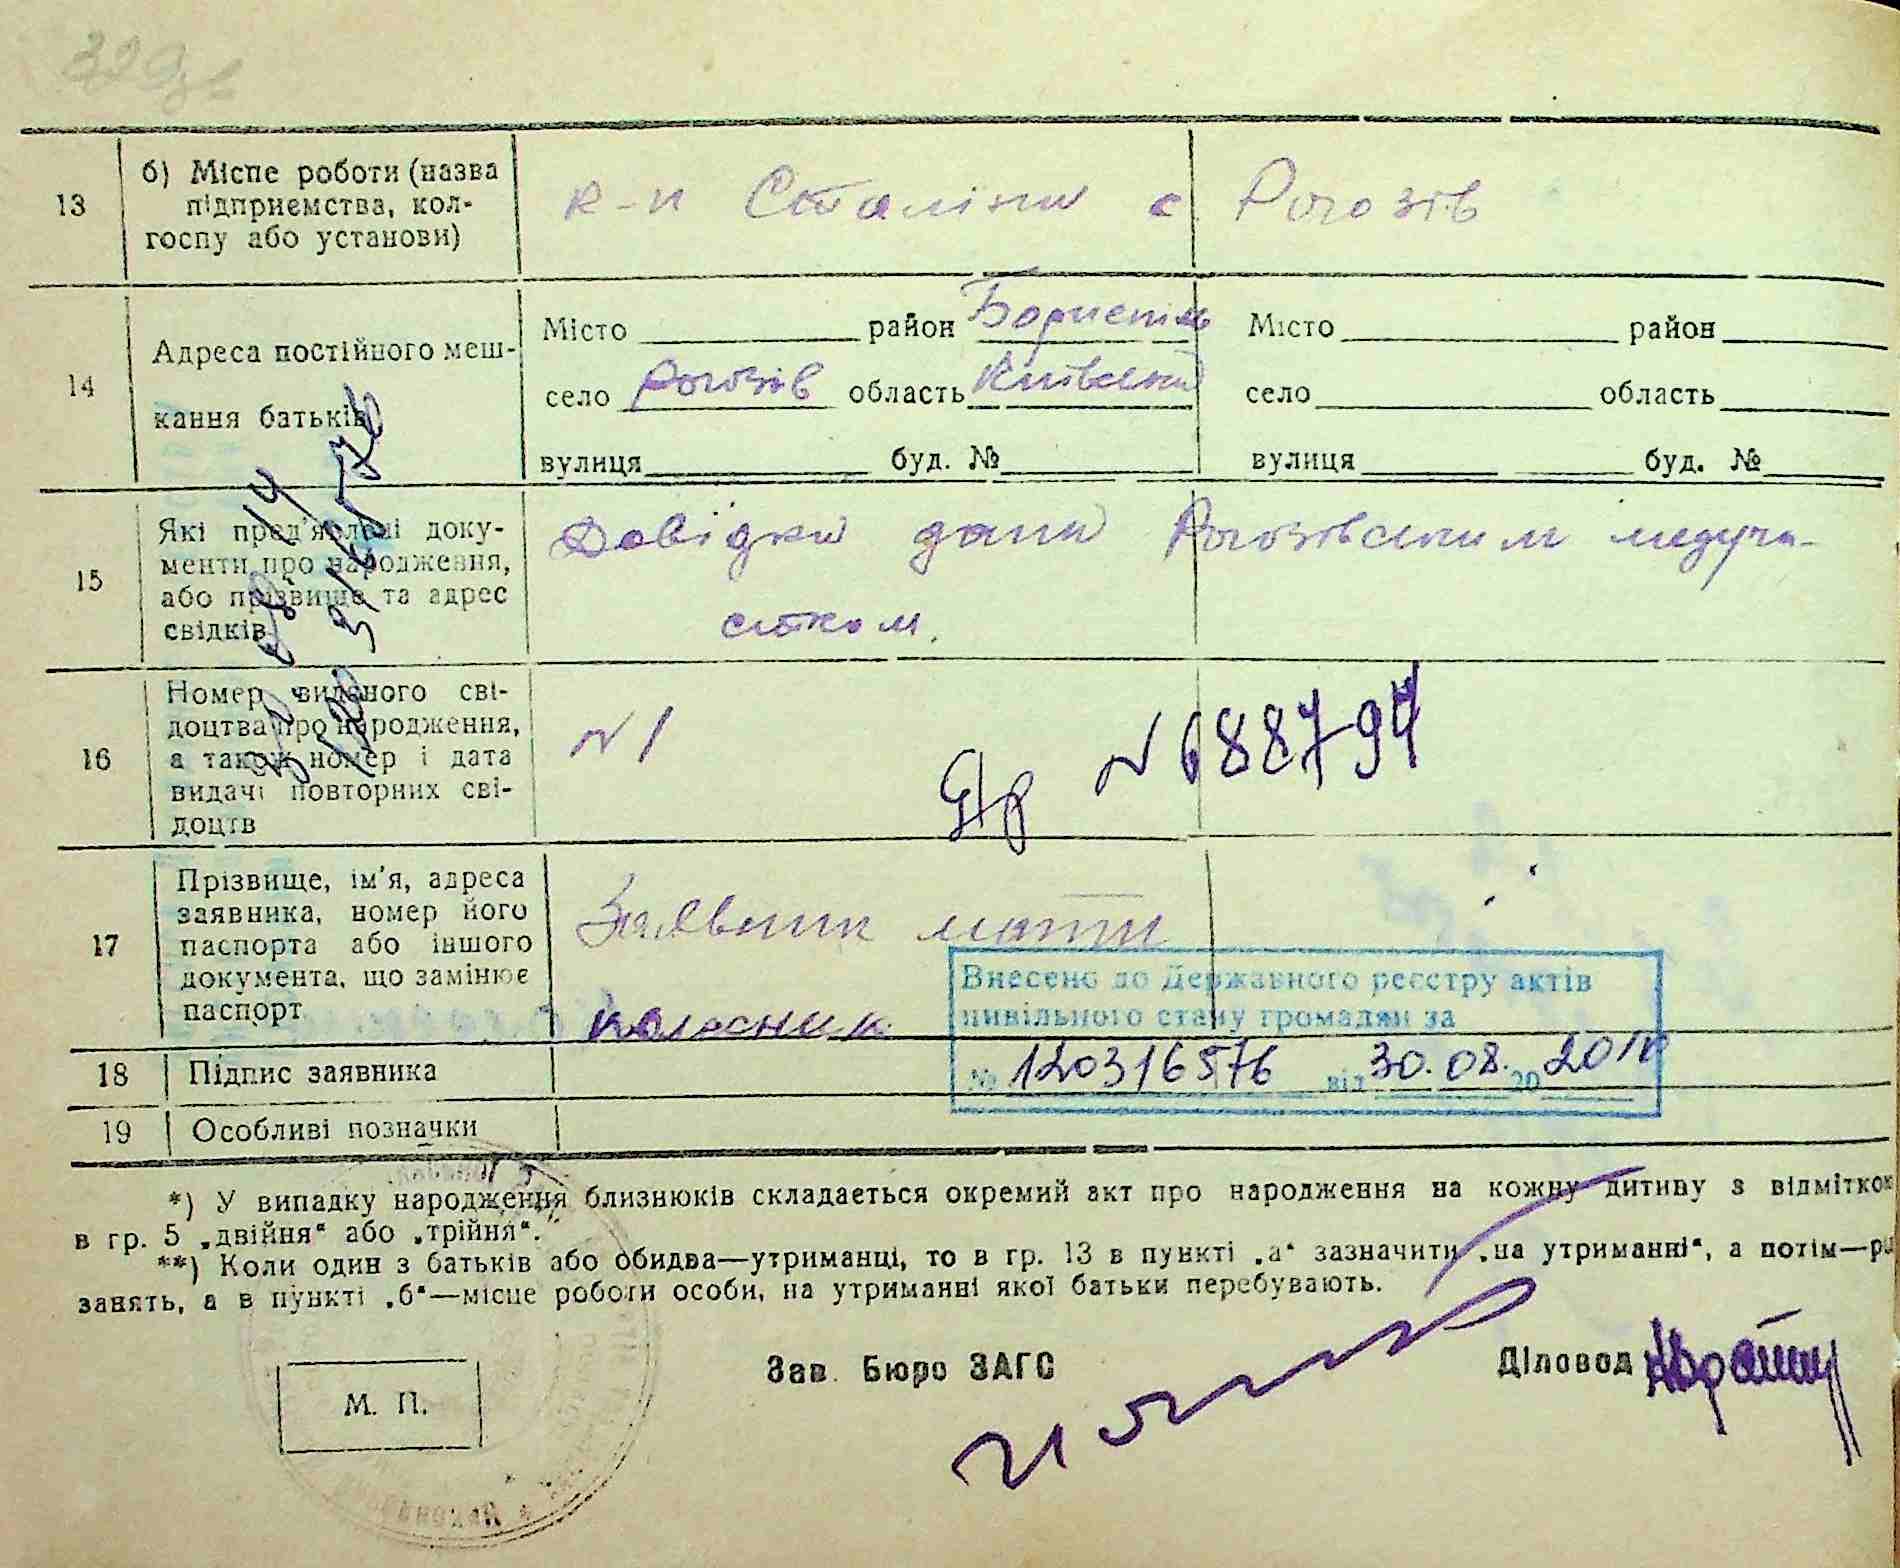 329зв
13
б) Місце роботи (назва
підприємства, кол-
госпу або установи)
к-п Сталіна с Рогозів
14
Адреса постійного меш-
кання батьків
Місто район Бориспіль
село Рогозів область Київська
вулиця буд. №
Місто район
село область
вулиця буд. №
15
Які пред'явлені доку-
менти про народження,
або прізвище та адрес
свідків
Довідка дана Рогозівським медуча-
стком.
16
Номер виданого сві-
доцтва про народження,
а також номер і дата
видачі повторних сві-
доцтв
№ 1
№ 688794
17
Прізвище, ім'я, адреса
заявника, номер його
паспорта або іншого
документа, що замінює
паспорт
Заявник мати
Колесник
Внесено до Державного реєстру актів
цивільного стану громадян за
№ 120316576 від 30.08.20
18
Підпис заявника
19
Особливі позначки
*) У випадку народження близнюків складається окремий акт про народження на кожну дитину з відміткою
в гр. 5 „двійня“ або „трійня“.
**) Коли один з батьків або обидва—утриманці, то в гр. 13 в пункті „а“ зазначити „на утриманні“, а потім—рід
занять, а в пункті „б“—місце роботи особи, на утриманні якої батьки перебувають.
М. П.
Зав. Бюро ЗАГС
Діловод